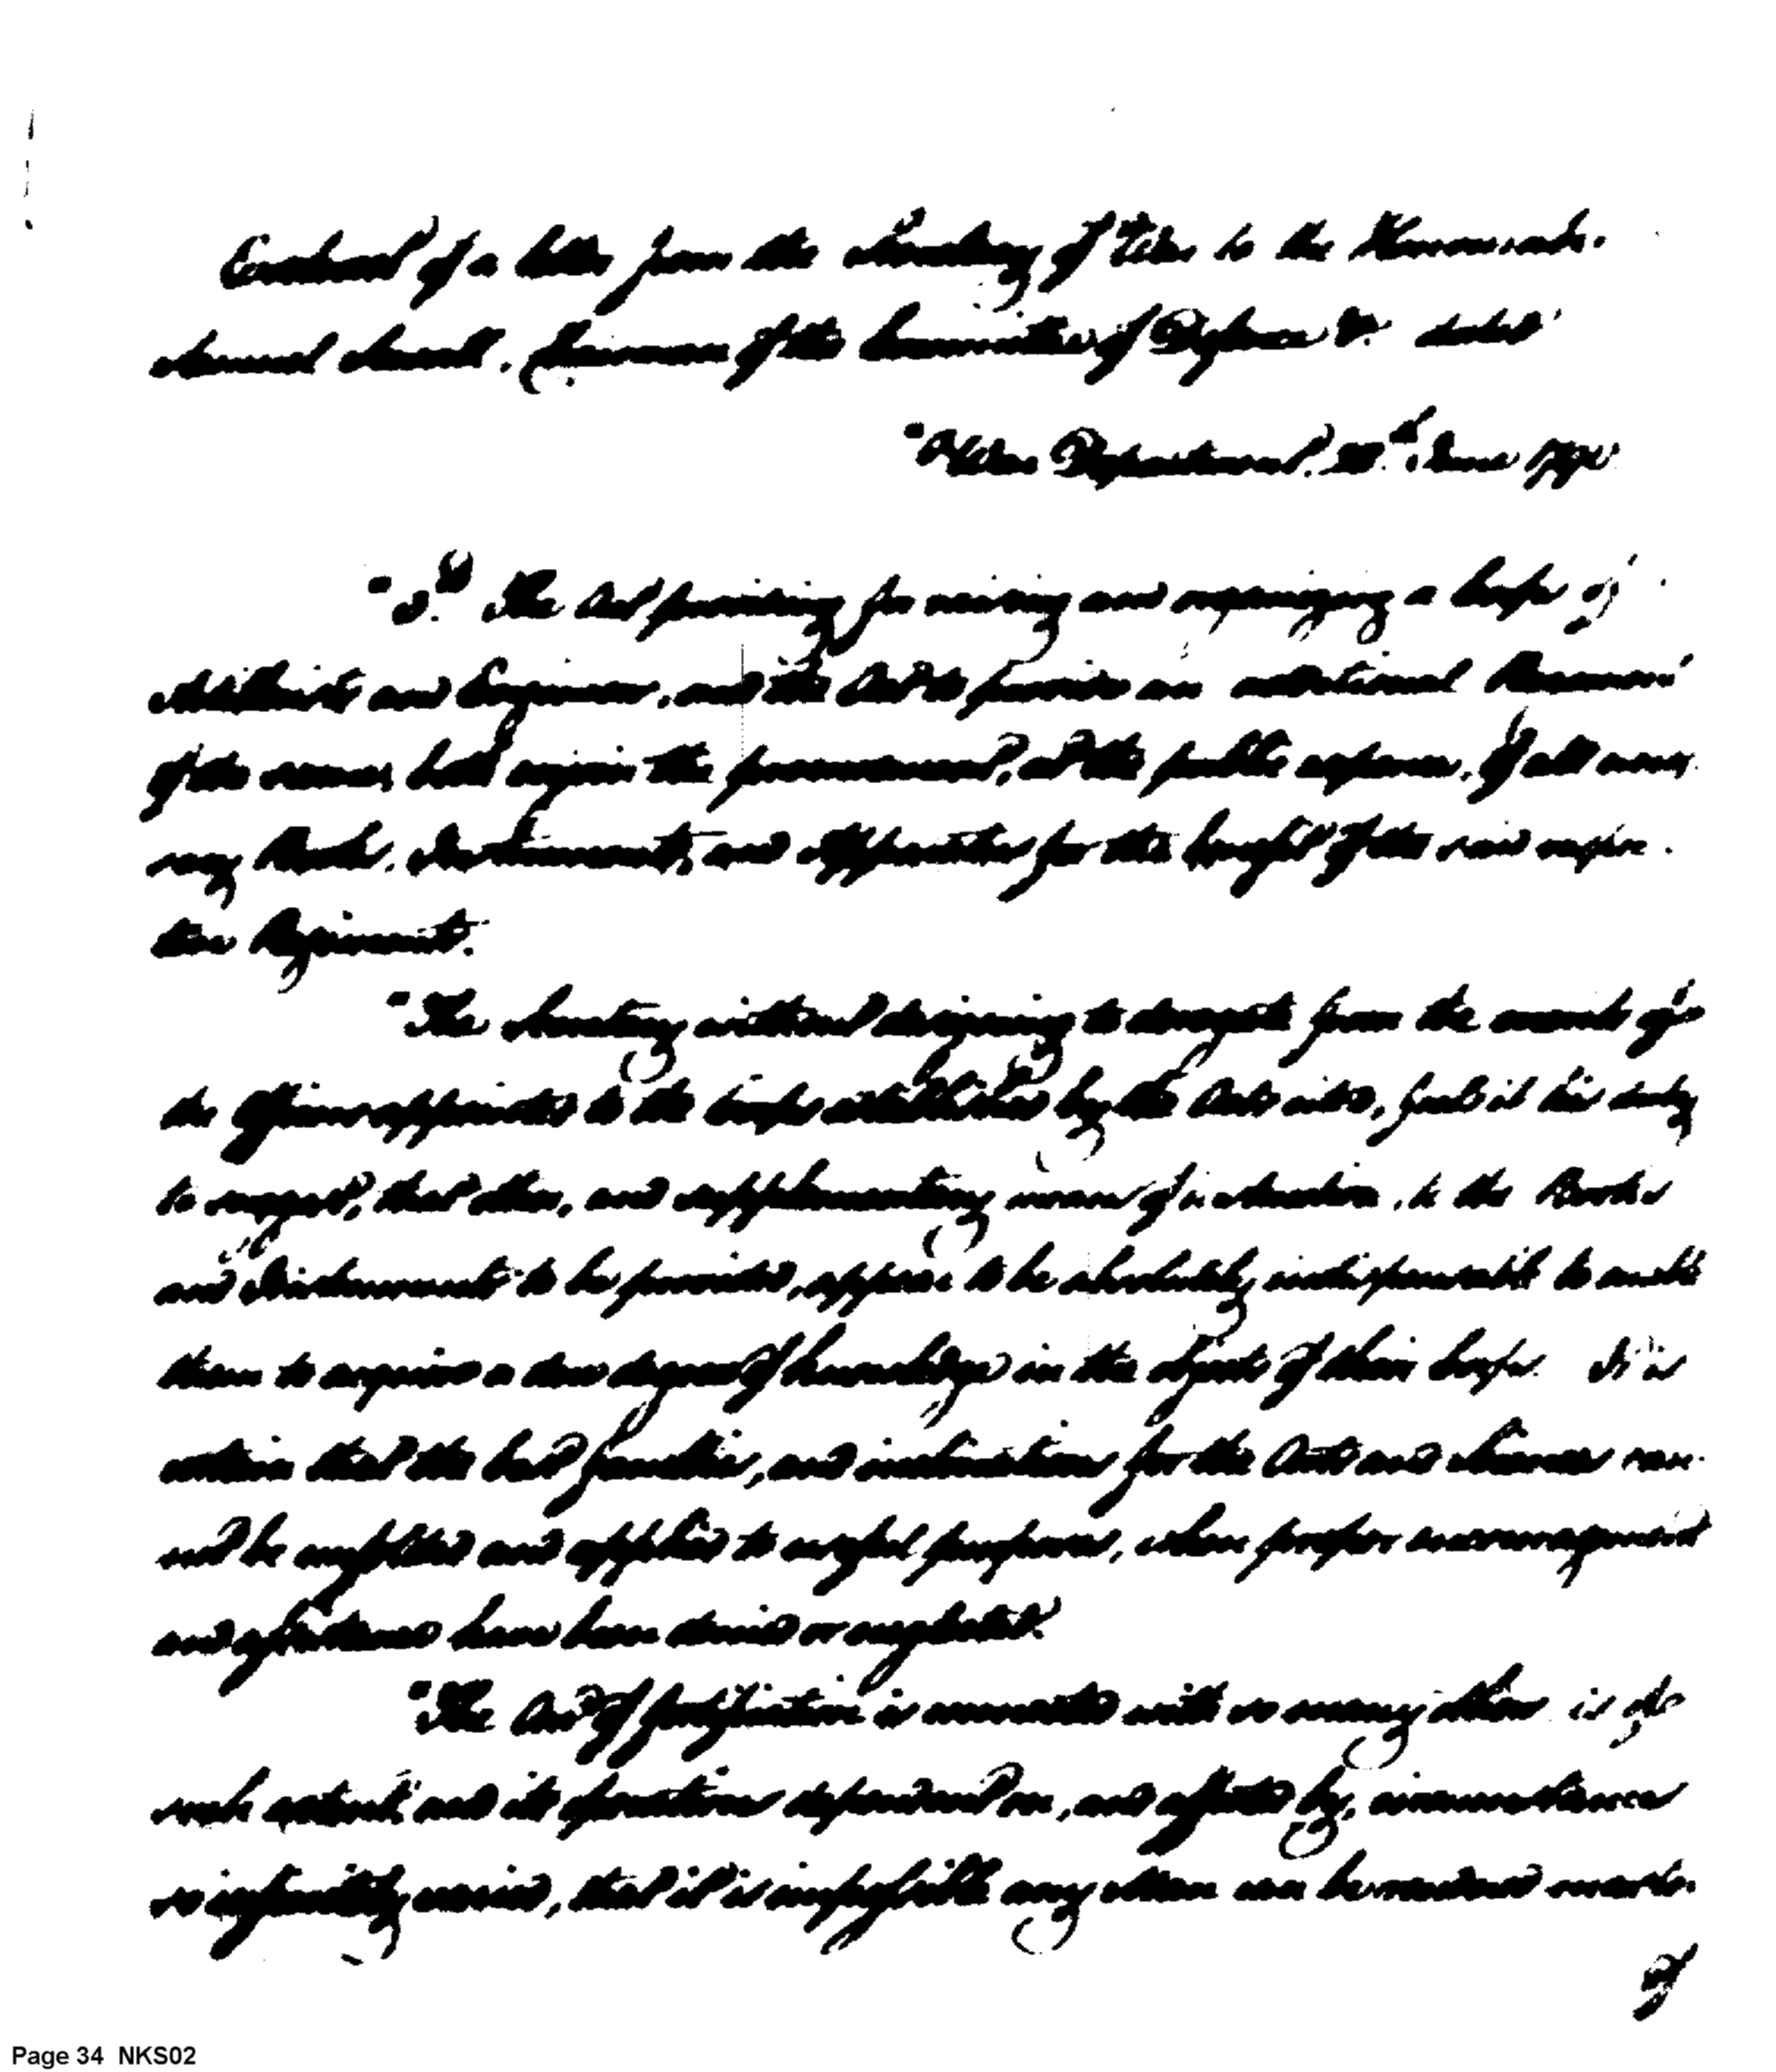 Extract of a letter from the Secretary of War to the Honorable
Samuel Sewall, Chairman of the Committee of Defence &c. dated
"War Department, June
"S.r The Act providing for raising and organizing a Corps of
Artillerists and Engineers, and the Act to provide an additional Regiment
of the same, both enjoin the procurement, at the public expense, of all neces-
sary Books, Instruments, and Apparatus for the benefit of the said respec-
tive Regiments.
"The Secretary without designing to derogate from the merits of
the Officers appointed to the Corps established by the Acts cited, feels it his duty
to suggest, that other, and supplementary means of instruction, to the Books
and Instruments to be provided, appear to be absolutely indispensable to enable
them to acquire a due degree of knowledge in the objects of their Corps. It is
certain that the best faculties, and inclinations for the Arts and Sciences can-
not be unfolded and applied to useful purposes, when proper encouragement
and assistance have been denied or neglected.
"The Art of fortification is connected with so many others is of
such extent and its operations dependent on, and affected by, circumstances
so infinitely varied, that it is impossible any when can be rendered master
of
Page 34 NKS02